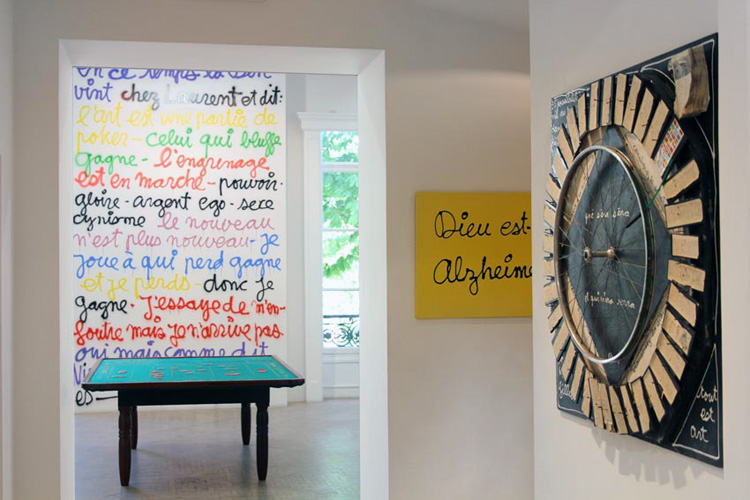 en ce temps là Ben
vint chez Laurent et dit:
l'art est une partie de
poker - celui qui bluffe
gagne - l'engrenage
est en marche - pouvoir -
gloire - argent ego - sexe
cynisme le nouveau
n'est plus nouveau - je
joue à qui perd gagne
et je perds - donc je
gagne. J'essaye de m'en-
foutre mais je n'arrive pas
oui mais comme dit
Dieu est
Alzheime
que sera sera
tout
est
art